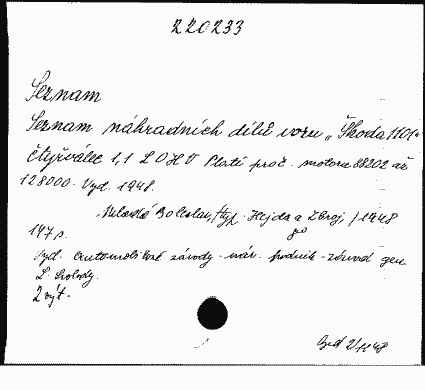 220233
Seznam
Seznam náhradních dílů vozu „Škoda 1101"
čtyřválec 1,1 L OHV Platí pro č. motoru 88202 až
128000. Vyd. 1948.
Mladá Boleslav, Typ. Hejda a Zbroj, 1948
197 s.
Vyd. Automobilové závody - nár. podnik - závod gen.
2 výt.